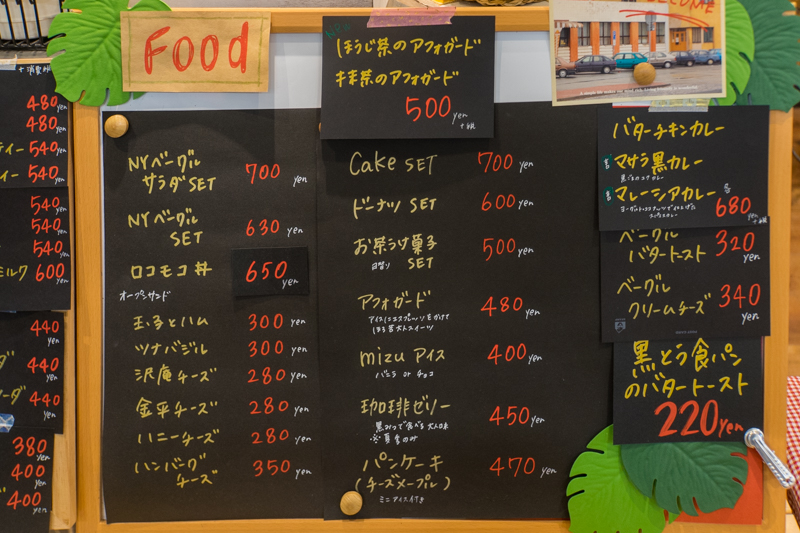 480 yen
480 yen
540 yen
540 yen
540 yen
540 yen
540 yen
ミルク 600 yen
440 yen
440 yen
440 yen
380 yen
400 yen
400 yen
Food
NYベーグル
サラダSET 700 yen
NYベーグル
SET 630 yen
ロコモコ丼 650 yen
オープンサンド
玉子とハム 300 yen
ツナバジル 300 yen
沢庵チーズ 280 yen
金平チーズ 280 yen
ハニーチーズ 280 yen
ハンバーグ
チーズ 350 yen
ほうじ茶のアフォガード
抹茶のアフォガード
500 yen
Cake SET 700 yen
ドーナツ SET 600 yen
お茶うけ菓子
日替り SET 500 yen
アフォガード 480 yen
アイスにエスプレッソをかけて
mizu アイス 400 yen
バニラ or チョコ
珈琲ゼリー 450 yen
黒みつで食べる大人味
※夏季のみ
パンケーキ
(チーズメープル) 470 yen
ミニアイス付き
WELCOME
バターチキンカレー
マサラ黒カレー
マレーシアカレー
680 yen
ベーグル
バタートースト 320 yen
ベーグル
クリームチーズ 340 yen
黒とう食パン
のバタートースト
220 yen